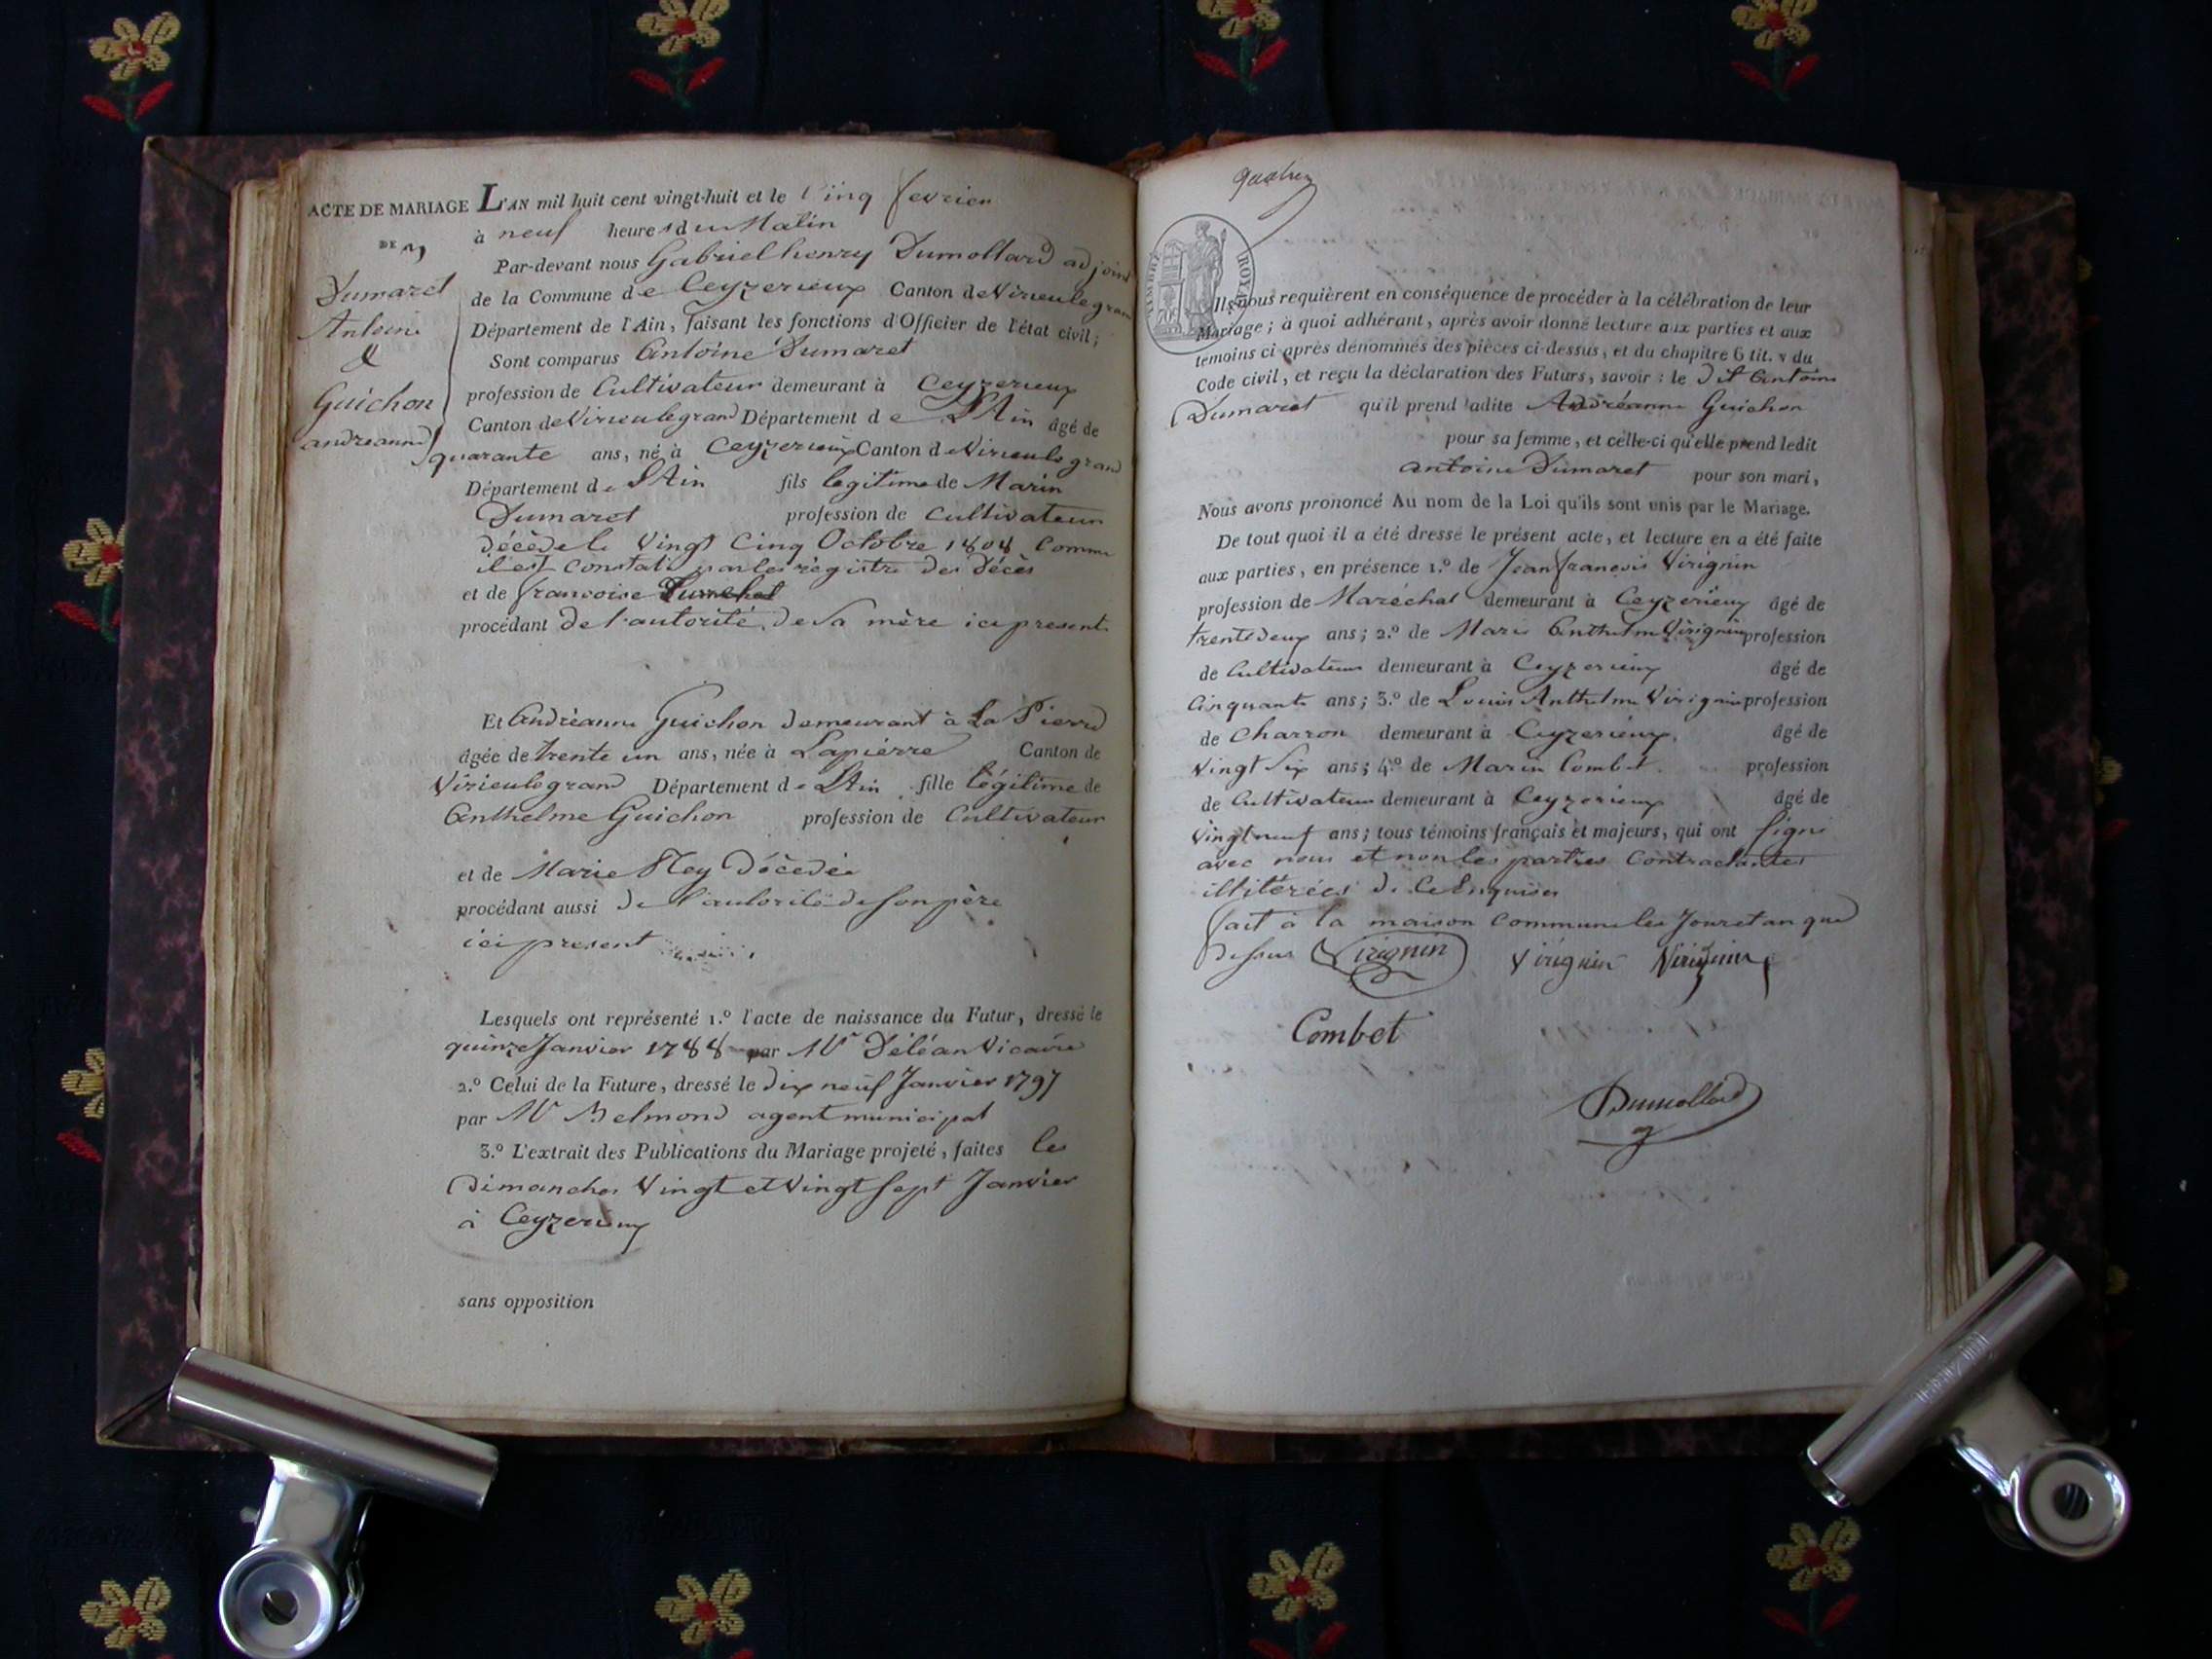 ACTE DE MARIAGE L'AN mil huit cent vingt-huit et le Cinq fevrier
DE
à neuf heures du Matin
Par-devant nous Gabriel henry Dumollard adjoint
Dumaret
de la Commune de Ceyzerieux Canton de Virieulegrand
Antoine
Département de l'Ain, faisant les fonctions d'Officier de l'état civil;
&
Sont comparus Antoine Dumaret
Guichon
profession de Cultivateur demeurant à Ceyzerieux
andréanne
Canton de Virieulegrand Département de L'Ain âgé de
quarante ans, né à Ceyzerieux Canton de Virieulegrand
Département de L'Ain fils legitime de Marin
Dumaret profession de Cultivateur
décédé le Vingt Cinq Octobre 1808 Comme
il est Constaté par les registre des décès
et de francoise
procédant de l'autorité de Sa mère ici presente
Et Andréanne Guichon demeurant à La Pierre
âgée de trente un ans, née à Lapierre Canton de
Virieulegrand Département de L'Ain fille légitime de
Anthelme Guichon profession de Cultivateur
et de Marie Rey Décédée
procédant aussi de l'autorité de Son père
ici present
Lesquels ont représenté 1.º l'acte de naissance du Futur, dressé le
quinze Janvier 1788 par Mr Déléan Vicaire
2.º Celui de la Future, dressé le dix neuf Janvier 1797
par Mr Belmond agent municipal
3.º L'extrait des Publications du Mariage projeté, faites les
Dimanches Vingt et Vingt Sept Janvier
à Ceyzerieux
sans opposition
TIMBRE ROYAL
Ils nous requièrent en conséquence de procéder à la célébration de leur
Mariage; à quoi adhérant, après avoir donné lecture aux parties et aux
témoins ci-après dénommés des pièces ci-dessus, et du chapitre 6 tit. v du
Code civil, et reçu la déclaration des Futurs, savoir: le dit Antoine
Dumaret qu'il prend ladite Andréanne Guichon
pour sa femme, et celle-ci qu'elle prend ledit
antoine Dumaret pour son mari,
Nous avons prononcé Au nom de la Loi qu'ils sont unis par le Mariage.
De tout quoi il a été dressé le présent acte, et lecture en a été faite
aux parties, en présence 1.º de Jean françois Virignin
profession de Maréchal demeurant à Ceyzerieux âgé de
trente deux ans; 2.º de Marie Anthelme Virignin profession
de Cultivateur demeurant à Ceyzerieux âgé de
Cinquante ans; 3.º de Louis Anthelme Virignin profession
de Charron demeurant à Ceyzerieux. âgé de
Vingt Six ans; 4.º de Marin Combet profession
de Cultivateur demeurant à Ceyzerieux âgé de
Vingt neuf ans; tous témoins français et majeurs, qui ont Signé
avec nous et non les parties Contractantes
illitérées de Ce Enquises
fait à la maison Commune les Jour et an que
Dessus Virignin Virignin Virignin
Combet
Dumollard